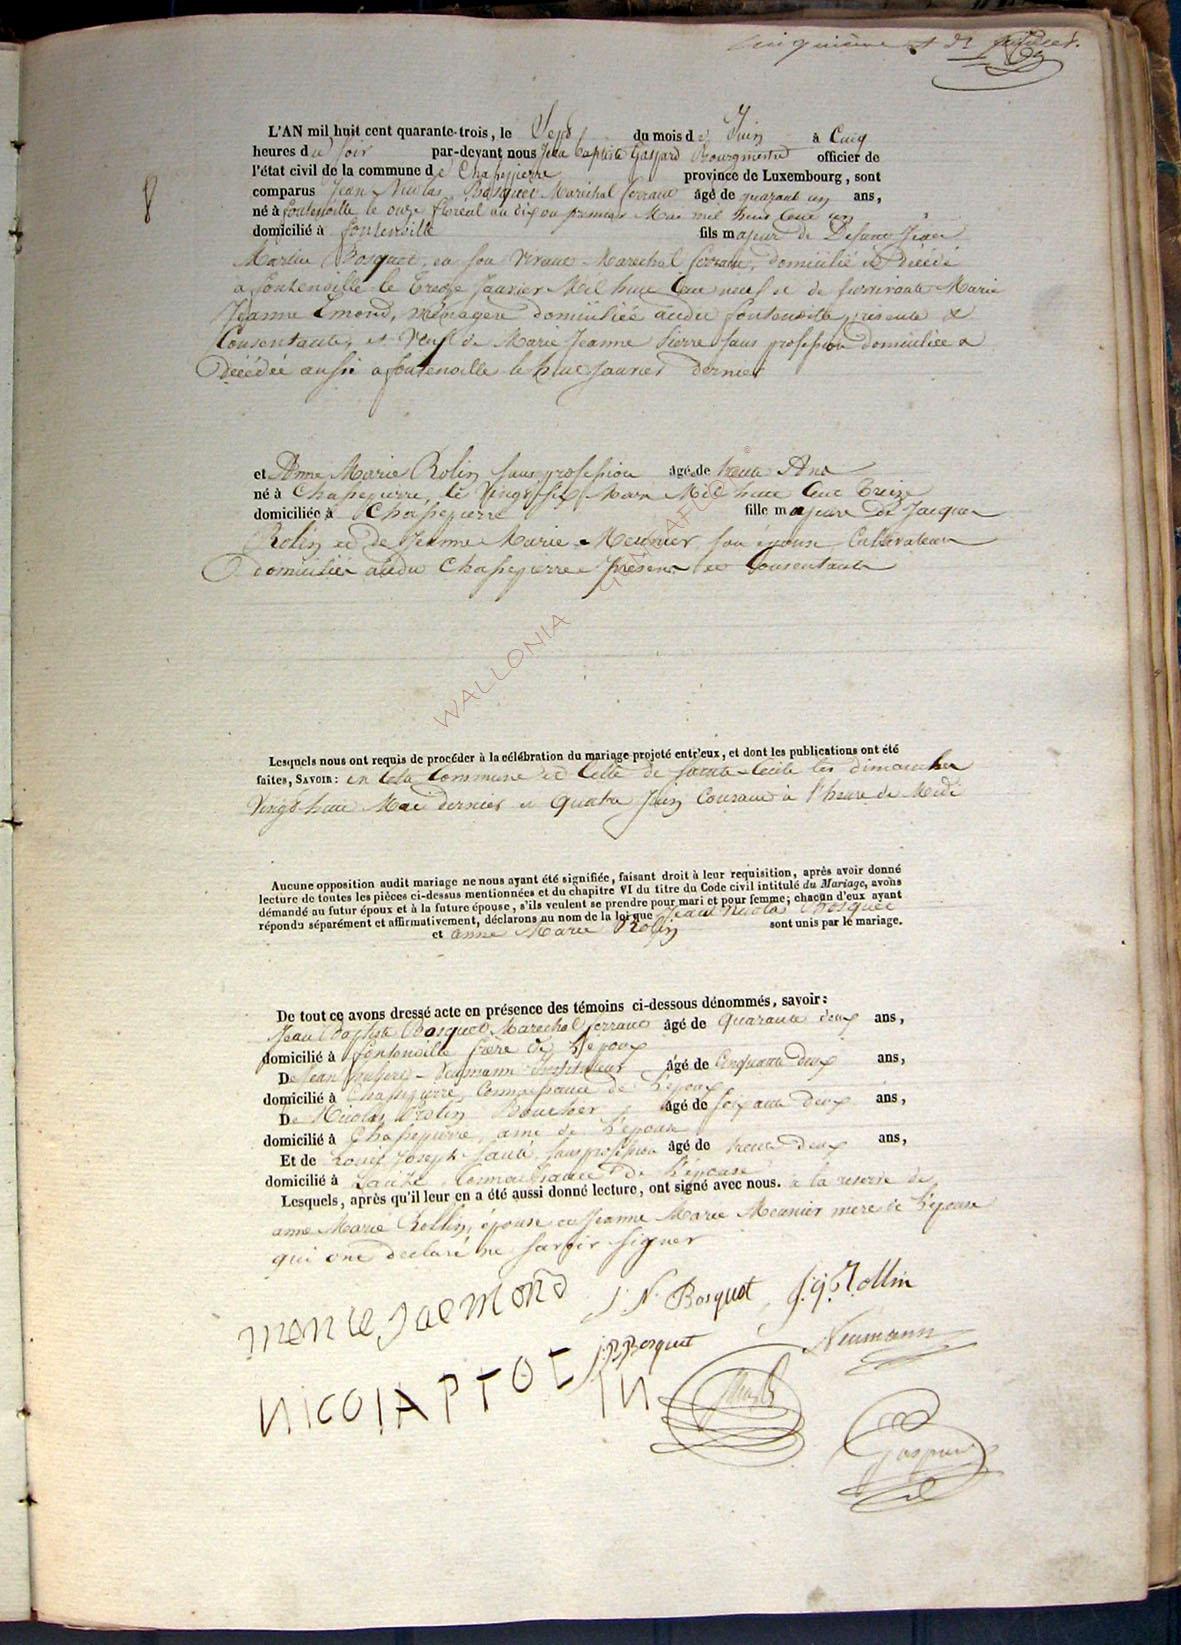 Cinquième et dr feuillet.
L'AN mil huit cent quarante-trois, le Sept du mois de Juin à Cinq
heures du soir par-devant nous Jean Baptiste Gaspard Bourgmestre officier de
l'état civil de la commune de Chassepierre province de Luxembourg, sont
comparus Jean Nicolas Bosquet Marechal ferrant âgé de quarant un ans,
né à fontenoille le onze floreal an dix ou premier Mai mil huit Cent un
domicilié à fontenoille fils majeur de Defunt Jean
Martin Bosquet, en son vivant Marechal ferrant, domicilié et décédé
a fontenoille le treize Janvier Mil huit Cent neuf et de survivante Marie
Jeanne Emond, ménagere domiciliée audit fontenoille, presente &
Consentante, et Veuf de Marie Jeanne Pierre sans profession domiciliée &
décédée aussi a fontenoille le huit Janvier dernier
8
et Anne Marie Rolin sans profession âgé de trente Ans
né à Chassepierre, le Vingt six Mars Mil huit Cent Treize
domiciliée à Chassepierre fille majeure de Jacques
Rolin et de Jeanne Marie Meunier son épouse Cultivateurs
domiciliés audit Chassepierre présens et Consentants
WALLONIA
Lesquels nous ont requis de procéder à la célébration du mariage projeté entr'eux, et dont les publications ont été
faites, SAVOIR: en cette Commune et Celle de Sainte-Cécile les dimanches
Vingt huit Mai dernier et quatre Juin Courant à l'heure de Midi
Aucune opposition audit mariage ne nous ayant été signifiée, faisant droit à leur requisition, après avoir donné
lecture de toutes les pièces ci-dessus mentionnées et du chapitre VI du titre du Code civil intitulé du Mariage, avons
démandé au futur époux et à la future épouse, s'ils veulent se prendre pour mari et pour femme; chacun d'eux ayant
répondu séparément et affirmativement, déclarons au nom de la loi que Jean Nicolas Bosquet
et anne Marie Rolin sont unis par le mariage.
De tout ce avons dressé acte en présence des témoins ci-dessous dénommés, savoir:
Jean Baptiste Bosquet Marechal ferrant âgé de Quarante deux ans,
domicilié à fontenoille frère de L'époux
De Jean Neumann Instituteur âgé de Cinquante deux ans,
domicilié à Chassepierre, Connoissance de L'époux
De Nicolas Rolin Boucher, âgé de soixante deux ans,
domicilié à Chassepierre, ami de L'épouse
Et de Louis Joseph sans profession âgé de trente deux ans,
domicilié à Connoissance de L'épouse
Lesquels, après qu'il leur en a été aussi donné lecture, ont signé avec nous. à la reserve de
anne Marie Rollin, épouse et Jeanne Marie Meunier mere de L'épouse
qui ont declaré ne savoir signer
J. N. Bosquet J. Rollin
J B Bosquet Neumann
Gaspard